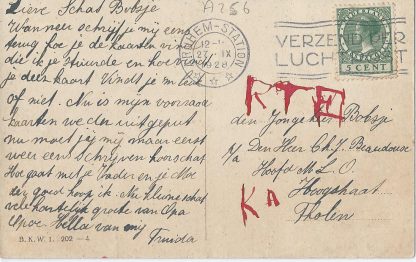 A256
Lieve Schat Bobsje
Wanneer schrijf je mij eens
terug hoe je de kaarten vindt
die ik je stuurde en hoe
je deze kaart Vindt je m leuk
of niet. Nu is mijn voorraad
kaarten weer uitgeput
nu moet jij mij maar eerst
weer eens schrijven hoor schat
Hoe gaat met je Vader en je Moe
der goed hoop ik. Nu kleine schat
vele hartelijke groete van Opa
Opoe. Hella van mij
Truida
B. K. W. I. 202 - 4
ARNHEM-STATION
12-1
27 IX
1928
VERZEND PER
LUCHTPOST
NEDERLAND
5 CENT
RTE
K
den Jongeheer Bobsje
p/a Den Heer Ch. J. Beaudouse
Hoofd M. L. O.
Hoogstraat
Tholen